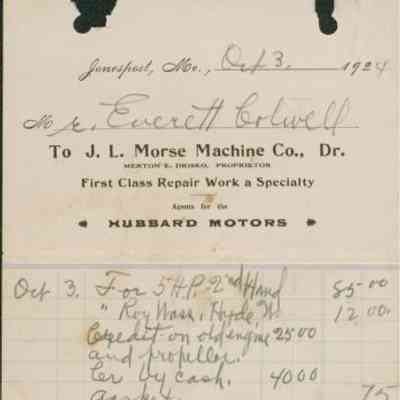 Jonesport, Me., Oct 3. 1924
Mr. Everett Colwell
To J. L. Morse Machine Co., Dr.
MERTON E. DROSKO, PROPRIETOR
First Class Repair Work a Specialty
Agents for the
HUBBARD MOTORS
Oct 3. For 5 H.P. 2nd Hand 85.00
" Roy Wass, 12.00.
Credit on old engine 25 00
and propeller.
Cr by cash. 40 00
75